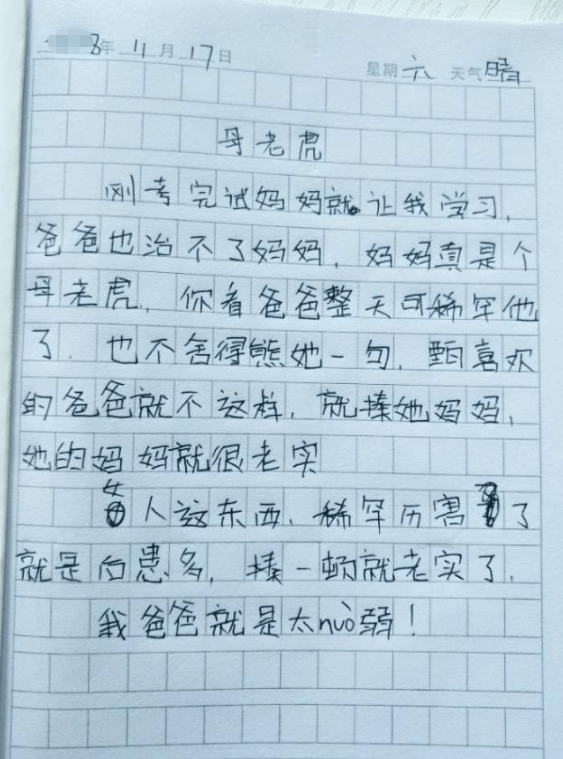 8年11月17日 星期六 天气晴
母老虎
刚考完试妈妈就让我学习,
爸爸也治不了妈妈,妈妈真是个
母老虎,你看爸爸整天可稀罕他
了,也不舍得熊她一句,甄喜欢
的爸爸就不这样,就揍她妈妈,
她的妈妈就很老实
女人这东西、稀罕历害了
就是后患多,揍一顿就老实了,
我爸爸就是太nuò弱!